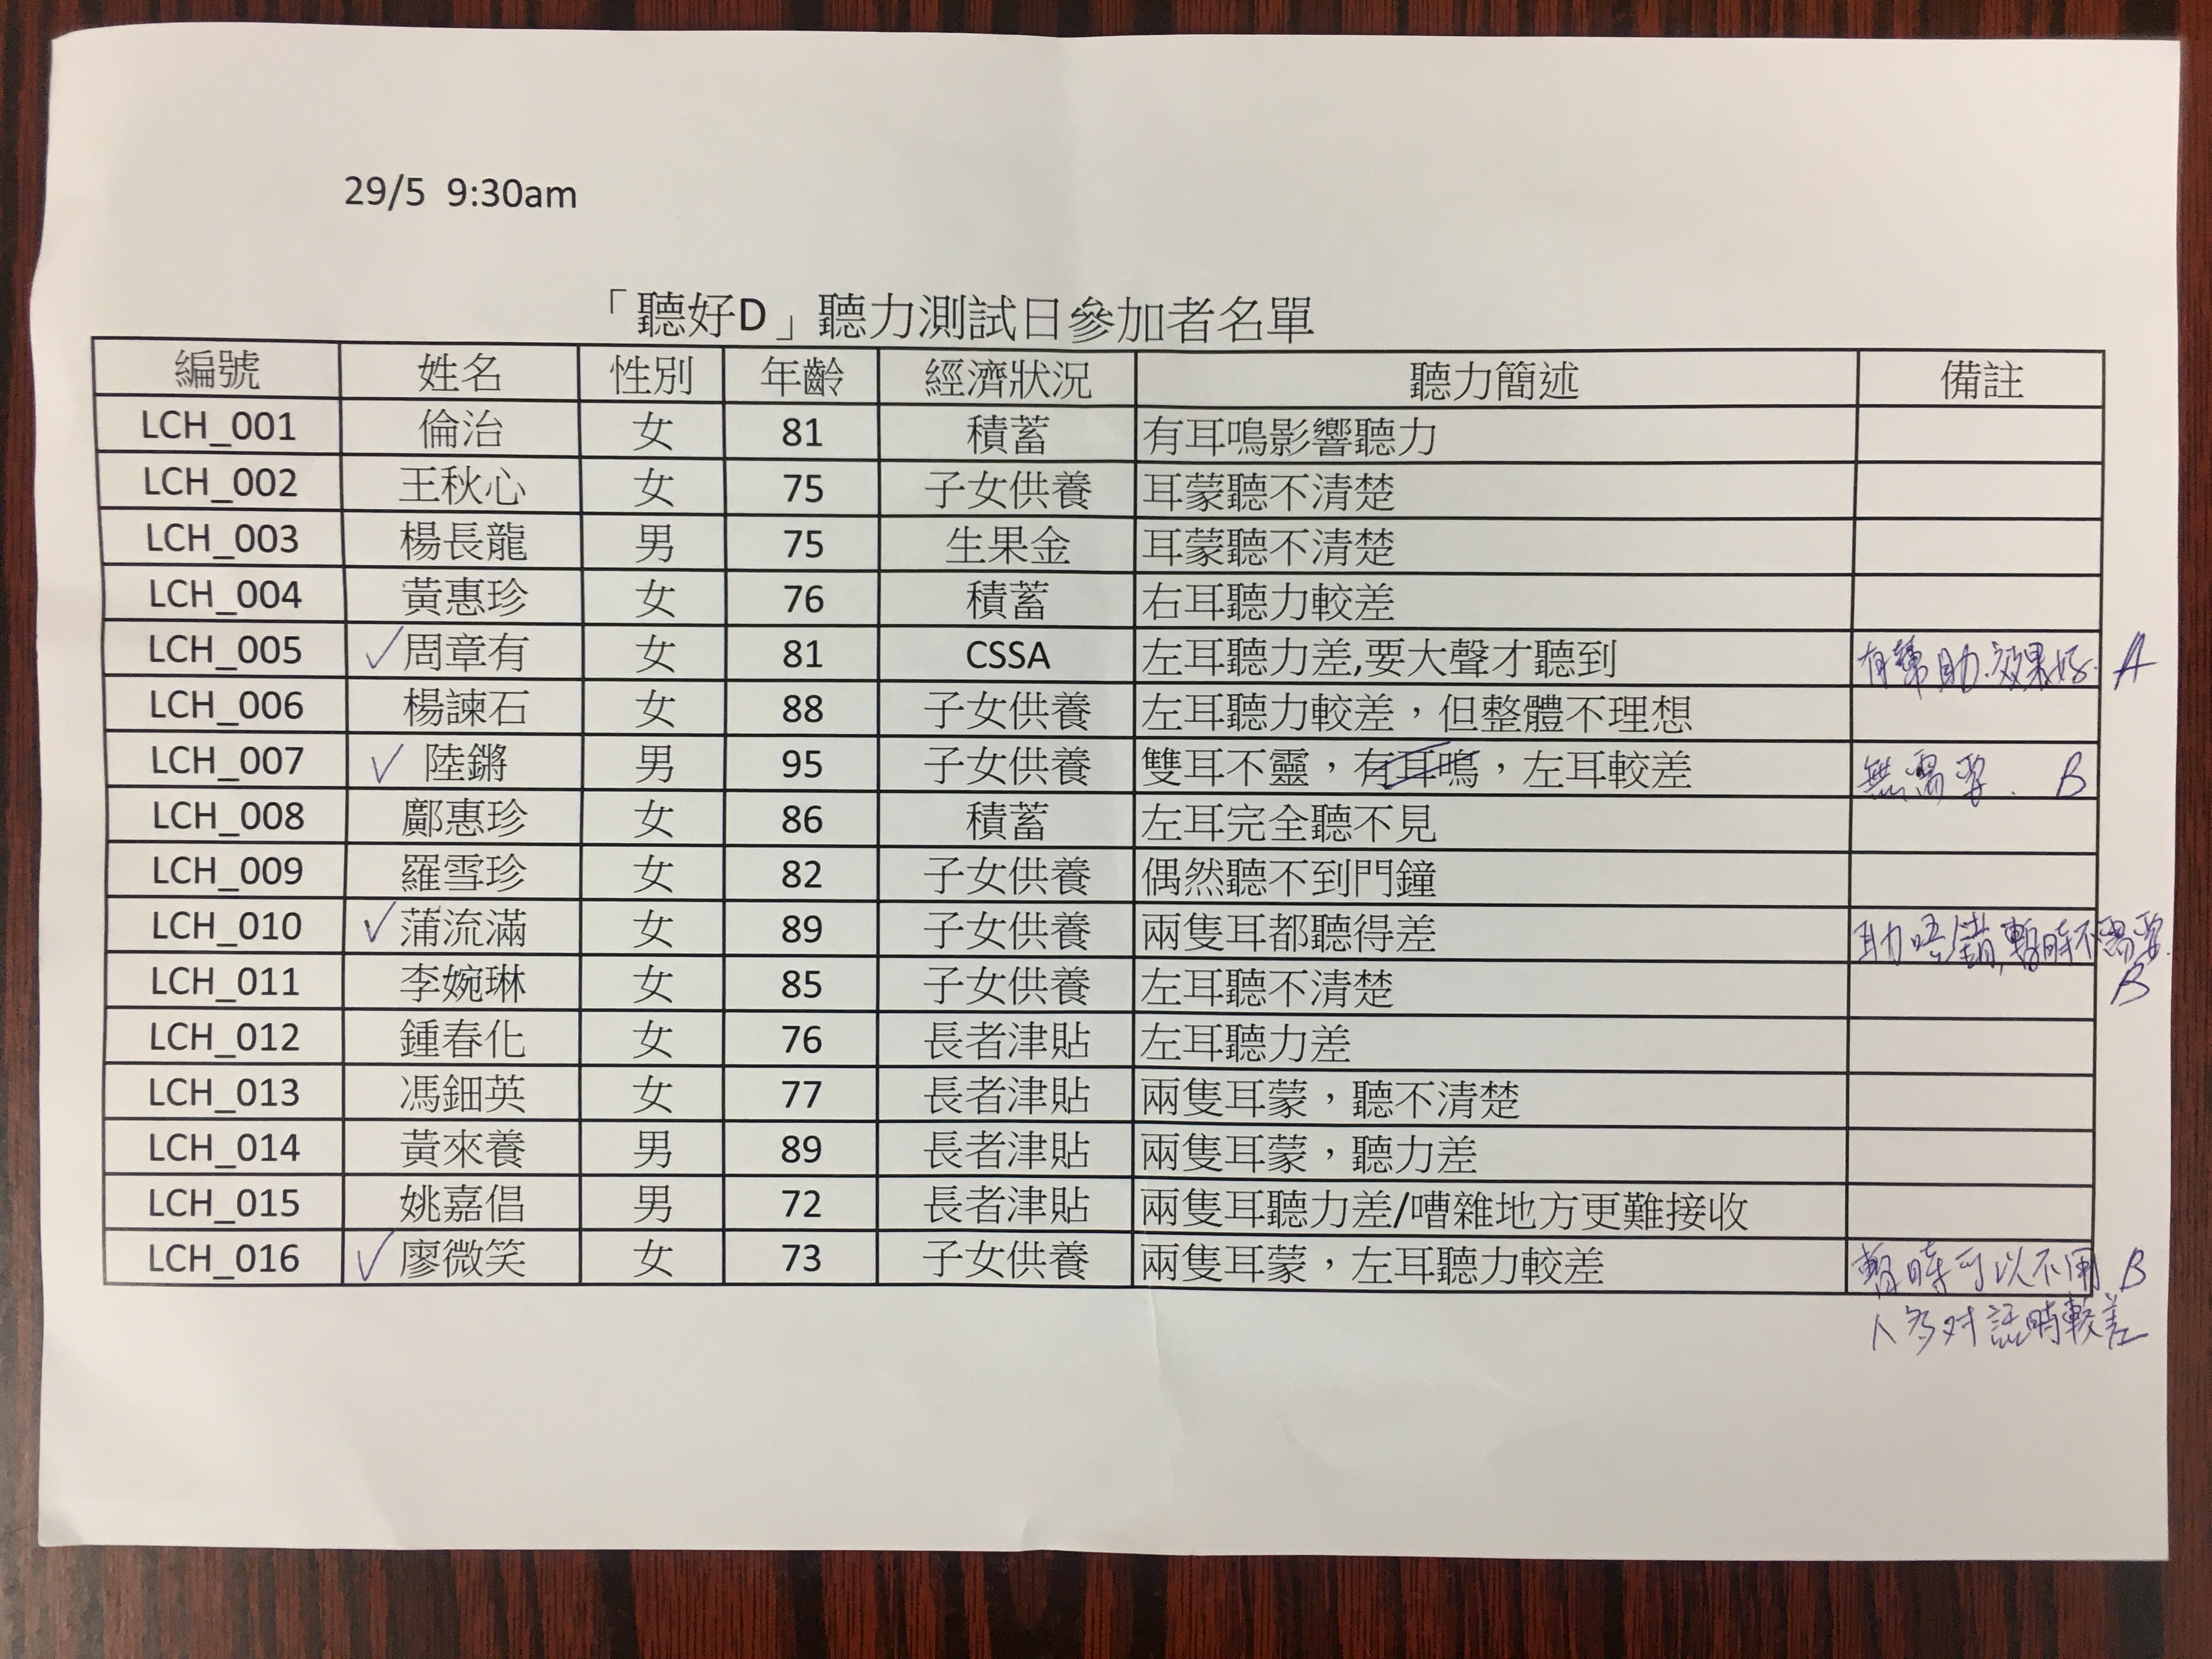 29/5 9:30am
「聽好D」聽力測試日參加者名單
編號 姓名 性別 年齡 經濟狀況 聽力簡述 備註
LCH_001 倫治 女 81 積蓄 有耳嗚影響聽力
LCH_002 王秋心 女 75 子女供養 耳蒙聽不清楚
LCH_003 楊長龍 男 75 生果金 耳蒙聽不清楚
LCH_004 黃惠珍 女 76 積蓄 右耳聽力較差
LCH_005 ✓周章有 女 81 CSSA 左耳聽力差,要大聲才聽到 有幫助.效果好. A
LCH_006 楊諫石 女 88 子女供養 左耳聽力較差，但整體不理想
LCH_007 ✓陸鏘 男 95 子女供養 雙耳不靈，有耳嗚，左耳較差 無需要. B
LCH_008 鄺惠珍 女 86 積蓄 左耳完全聽不見
LCH_009 羅雪珍 女 82 子女供養 偶然聽不到門鐘
LCH_010 ✓蒲流滿 女 89 子女供養 兩隻耳都聽得差 耳力唔錯,暫時不需要.
B
LCH_011 李婉琳 女 85 子女供養 左耳聽不清楚
LCH_012 鍾春化 女 76 長者津貼 左耳聽力差
LCH_013 馮鈿英 女 77 長者津貼 兩隻耳蒙，聽不清楚
LCH_014 黃來養 男 89 長者津貼 兩隻耳蒙，聽力差
LCH_015 姚嘉倡 男 72 長者津貼 兩隻耳聽力差/嘈雜地方更難接收
LCH_016 ✓廖微笑 女 73 子女供養 兩隻耳蒙，左耳聽力較差 暫時可以不用 B
人多对話時較差